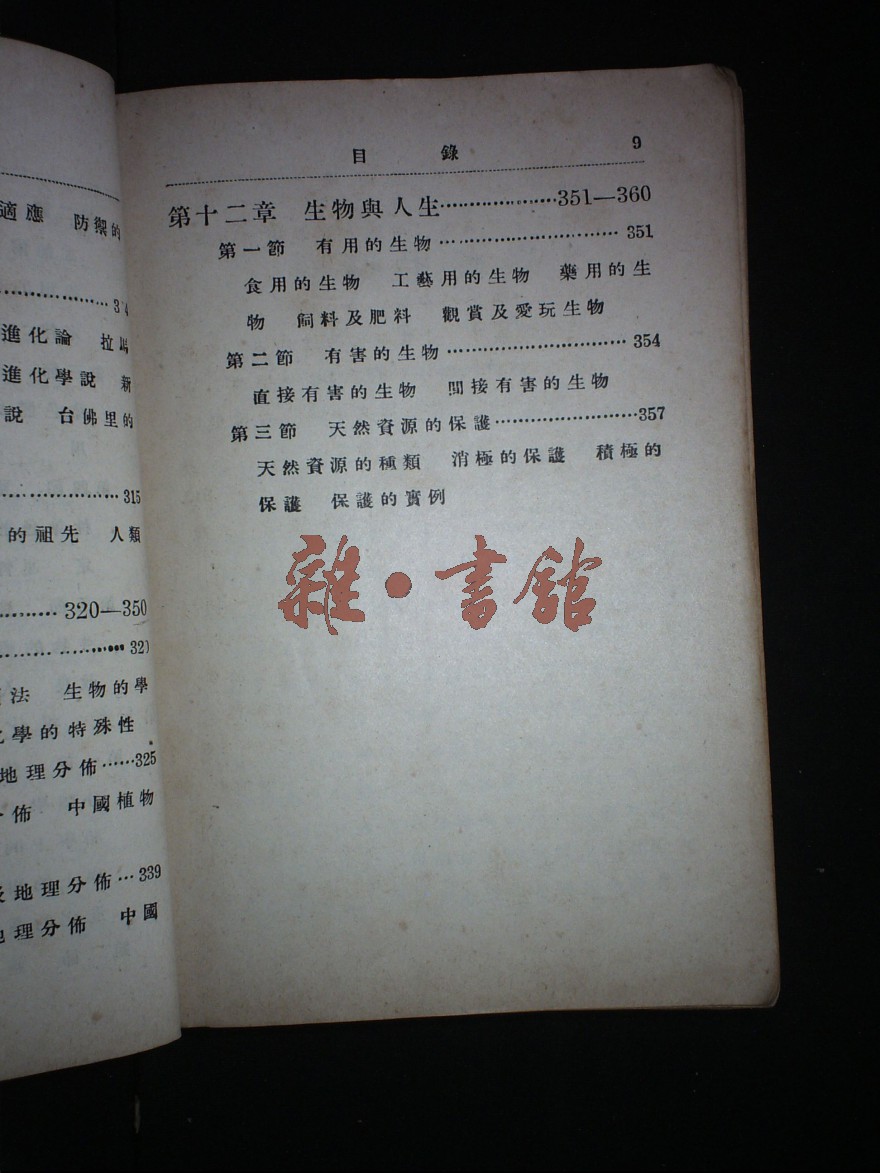 適應　防禦的
進化論　拉馬
進化學說　新
說　台佛里的
……315
的祖先　人類
……320—350
法　生物的學
學的特殊性
地理分佈……325
佈　中國植物
地理分佈…339
地理分佈　中國
目　錄　9
第十二章　生物與人生……351—360
第一節　有用的生物……351
食用的生物　工藝用的生物　藥用的生
物　飼料及肥料　觀賞及愛玩生物
第二節　有害的生物……354
直接有害的生物　間接有害的生物
第三節　天然資源的保護……357
天然資源的種類　消極的保護　積極的
保護　保護的實例
雜·書館